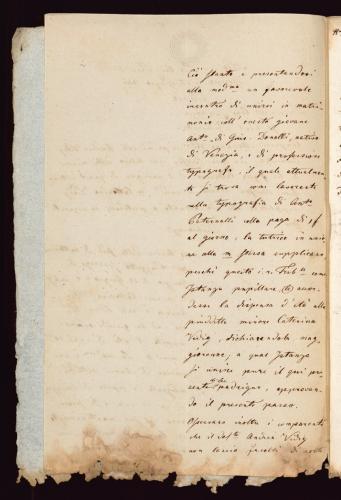 Ciò stante e presentandosi
alla med.ma un favorevole
incontro di unirsi in matri
monio coll' onesto giovane
Ant.o di Gius. Donelli, nativo
di Venezia, e di professione
tipografo, il quale attualmente
si trova come lavorante
nella tipografia di Ant.o
colla paga di
al giorno, la tutrice in unio
ne alla m stessa supplicano
perchè questo i. r. Trib.le come
Istanza pupillare accor
dasse la dispensa d' età alla
predetta minore Caterina
dichiarandola mag
giorenne; a qual Istanza
si unisce pure il qui pre
sente padrigno, approvan
do il presente passo.
Osservano inoltre i comparenti
che il def.to Andrea
non lasciò facoltà di sorte